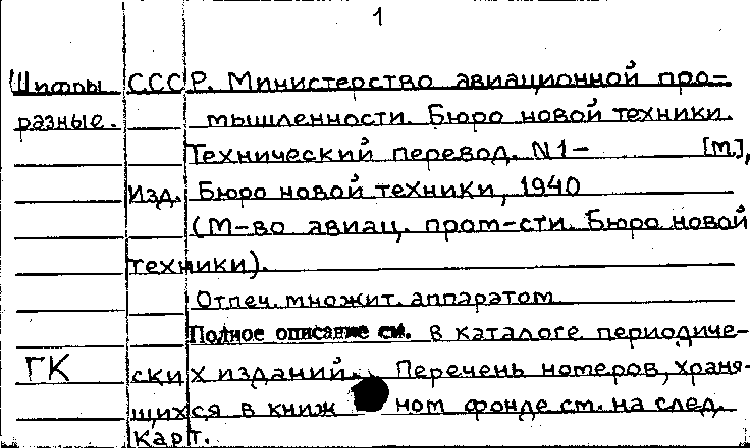 1
Шифры СССР. Министерство авиационной про-
разные. мышленности. Бюро новой техники.
Технический перевод. N1- [М.],
Изд. Бюро новой техники, 1940
(М-во авиац. пром-сти. Бюро новой
техники).
Отпеч. множит. аппаратом
Полное описание см. в каталоге периодиче-
ГК ских изданий. Перечень номеров, храня-
щихся в книжном фонде см. на след.
карт.